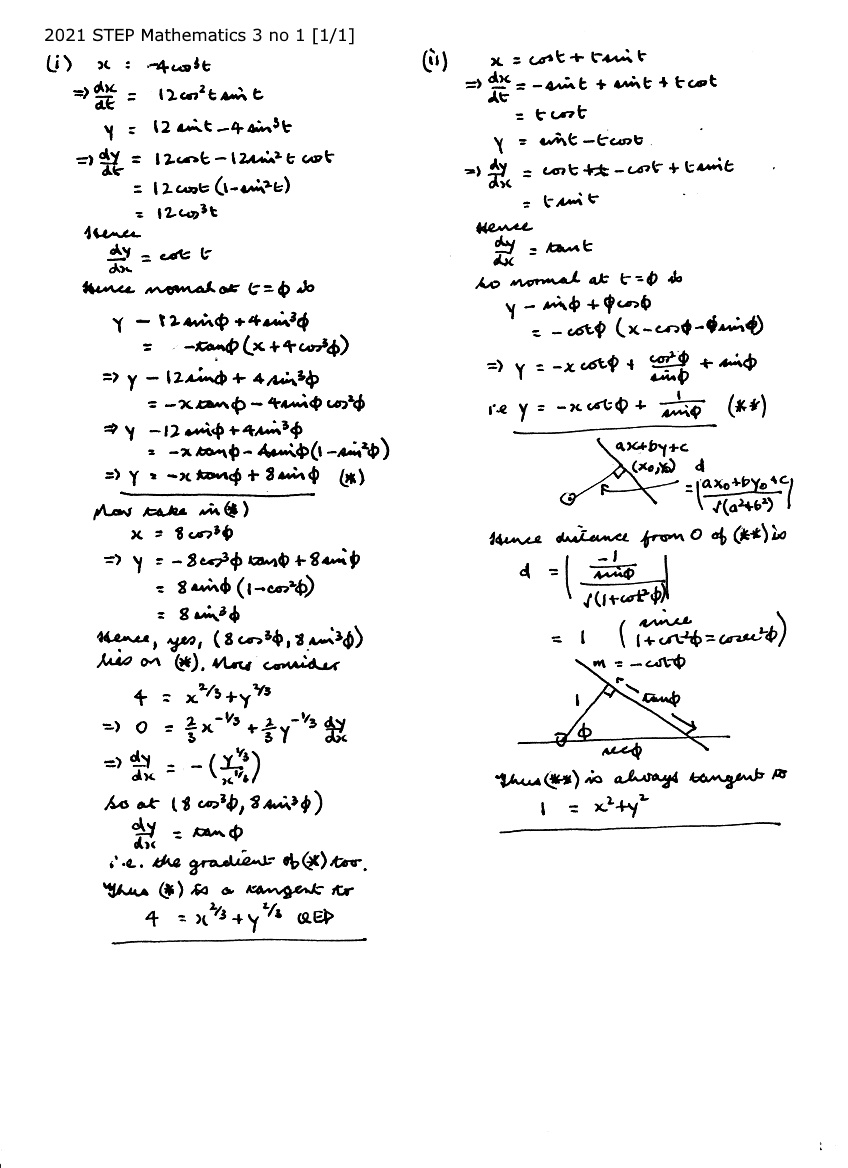 2021 STEP Mathematics 3 no 1 [1/1]
(i) x = -4cos³t
=> dx/dt = 12cos²t sin t
y = 12 sin t - 4 sin³t
=> dy/dt = 12cos t - 12sin²t cos t
= 12cos t (1-sin²t)
= 12cos³t
Hence
dy/dx = cot t
Hence normal at t=ϕ is
y - 12sinϕ + 4sin³ϕ
= -tanϕ(x+4cos³ϕ)
=> y - 12sinϕ + 4sin³ϕ
= -x tanϕ - 4sinϕ cos²ϕ
=> y - 12sinϕ + 4sin³ϕ
= -x tanϕ - 4sinϕ(1-sin²ϕ)
=> y = -x tanϕ + 8sinϕ (*)
Now take in (*)
x = 8cos³ϕ
=> y = -8cos³ϕ tanϕ + 8sinϕ
= 8sinϕ(1-cos²ϕ)
= 8sin³ϕ
Hence, yes, (8cos³ϕ, 8sin³ϕ)
lies on (*). Now consider
4 = x^2/3 + y^2/3
=> 0 = 2/3 x^-1/3 + 2/3 y^-1/3 dy/dx
=> dy/dx = -(y^1/3 / x^1/3)
So at (8cos³ϕ, 8sin³ϕ)
dy/dx = tanϕ
i.e. the gradient of (*) too.
Thus (*) is a tangent to
4 = x^2/3 + y^2/3 QED
(ii) x = cos t + t sin t
=> dx/dt = -sin t + sin t + t cos t
= t cos t
y = sin t - t cos t
=> dy/dx = cos t - cos t + t sin t
= t sin t
Hence
dy/dx = tan t
So normal at t=ϕ is
y - sinϕ + ϕcosϕ
= -cotϕ (x-cosϕ-ϕsinϕ)
=> y = -x cotϕ + cos²ϕ/sinϕ + sinϕ
i.e y = -x cotϕ + 1/sinϕ (**)
ax+by+c
(x₀,y₀) d
0
= |ax₀+by₀+c / √(a²+b²)|
Hence distance from O of (**) is
d = |-1/sinϕ / √(1+cot²ϕ)|
= 1 (since 1+cot²ϕ = cosec²ϕ)
m = -cotϕ
1 tanϕ
0 ϕ
secϕ
Thus (**) is always tangent to
1 = x²+y²